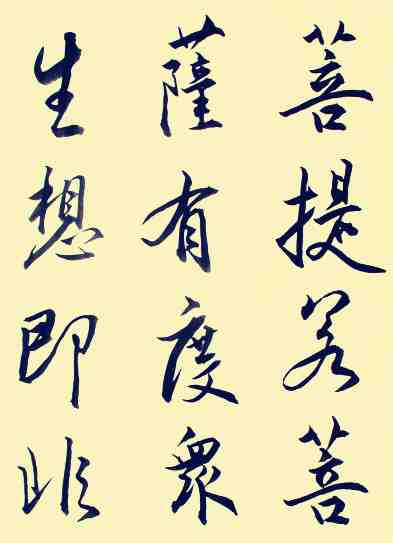 菩提若菩
薩有度衆
生想即非